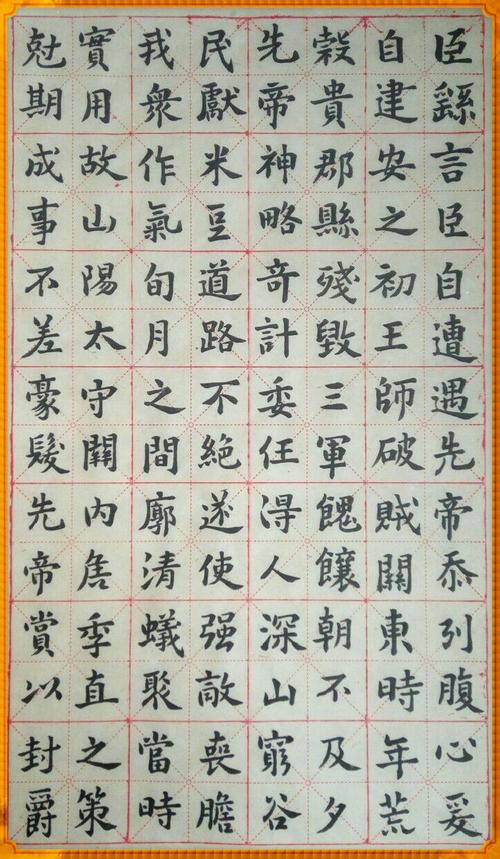 臣繇言臣自遭遇先帝忝列腹心爰
自建安之初王師破賊關東時年荒
穀貴郡縣殘毀三軍餽饟朝不及夕
先帝神略竒計委任得人深山窮谷
民獻米豆道路不絶遂使强敵喪膽
我衆作氣旬月之間廓清蟻聚當時
實用故山陽太守關内侯季直之策
尅期成事不差豪髮先帝賞以封爵